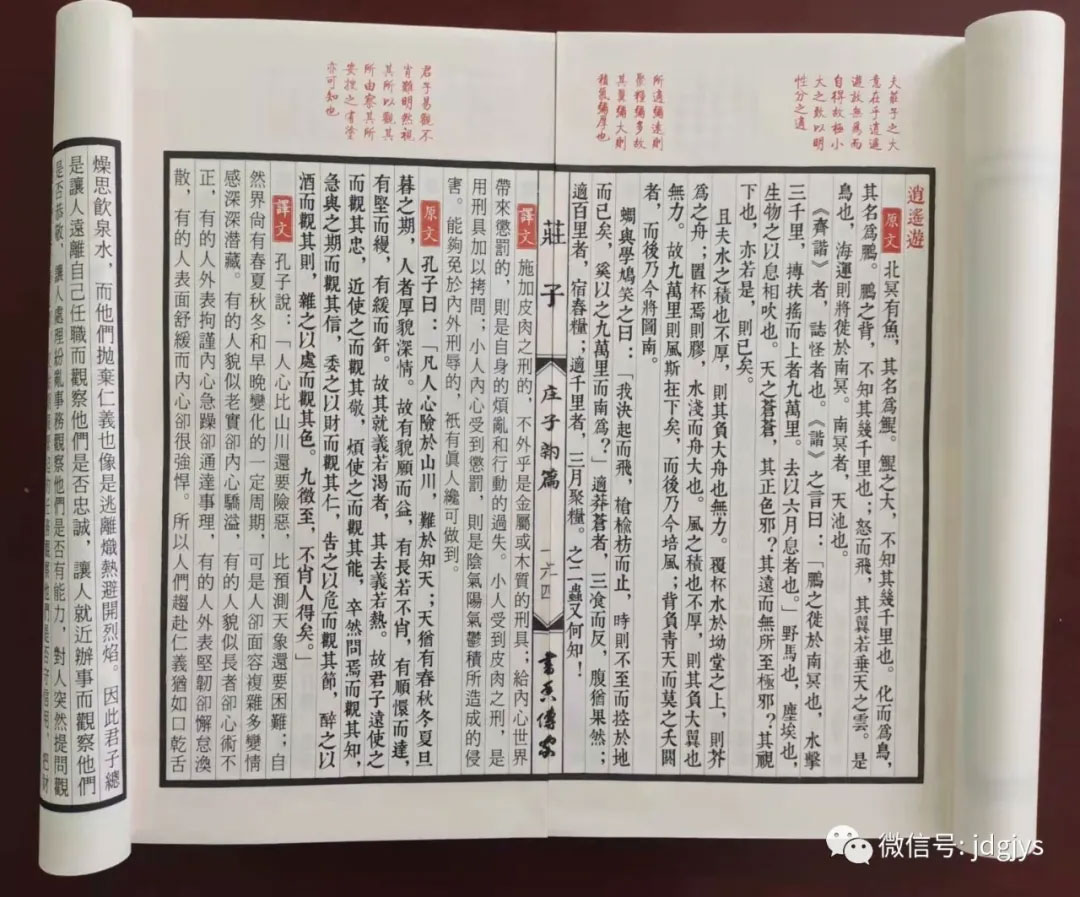 夫莊子之大
意在乎逍遙
遊放無為而
自得故極小
大之致以明
性分之適
所適彌遠則
聚糧彌多故
其翼彌大則
積氣彌厚也
逍遙遊
原文 北冥有魚，其名爲鯤。鯤之大，不知其幾千里也。化而爲鳥，
其名爲鵬。鵬之背，不知其幾千里也；怒而飛，其翼若垂天之雲。是
鳥也，海運則將徙於南冥。南冥者，天池也。
《齊諧》者，誌怪者也。《諧》之言曰：「鵬之徙於南冥也，水擊
三千里，摶扶搖而上者九萬里。去以六月息者也。」野馬也，塵埃也，
生物之以息相吹也。天之蒼蒼，其正色邪？其遠而無所至極邪？其視
下也，亦若是，則已矣。
且夫水之積也不厚，則其負大舟也無力。覆杯水於坳堂之上，則芥
爲之舟；置杯焉則膠，水淺而舟大也。風之積也不厚，則其負大翼也
無力。故九萬里則風斯在下矣，而後乃今培風；背負青天而莫之夭閼
者，而後乃今將圖南。
蜩與學鳩笑之曰：「我決起而飛，槍榆枋而止，時則不至而控於地
而已矣，奚以之九萬里而南爲？」適莽蒼者，三飡而反，腹猶果然；
適百里者，宿舂糧；適千里者，三月聚糧。之二蟲又何知！
莊子
庄子雜篇
一六四
書香傳家
君子易觀不
肖難明然視
其所以觀其
所由察其所
安搜之有塗
亦可知也
譯文 施加皮肉之刑的，不外乎是金屬或木質的刑具；給內心世界
帶來懲罰的，則是自身的煩亂和行動的過失。小人受到皮肉之刑，是
用刑具加以拷問；小人內心受到懲罰，則是陰氣陽氣鬱積所造成的侵
害。能夠免於內外刑辱的，衹有眞人纔可做到。
原文 孔子曰：「凡人心險於山川，難於知天；天猶有春秋冬夏旦
暮之期，人者厚貌深情。故有貌願而益，有長若不肖，有順懁而達，
有堅而縵，有緩而釬。故其就義若渴者，其去義若熱。故君子遠使之
而觀其忠，近使之而觀其敬，煩使之而觀其能，卒然問焉而觀其知，
急與之期而觀其信，委之以財而觀其仁，告之以危而觀其節，醉之以
酒而觀其則，雜之以處而觀其色。九徵至，不肖人得矣。」
譯文 孔子說：「人心比山川還要險惡，比預測天象還要困難；自
然界尙有春夏秋冬和早晚變化的一定周期，可是人卻面容複雜多變情
感深深潛藏。有的人貌似老實卻內心驕溢，有的人貌似長者卻心術不
正，有的人外表拘謹內心急躁卻通達事理，有的人外表堅韌卻懈怠渙
散，有的人表面舒緩而內心卻很強悍。所以人們趨赴仁義猶如口乾舌
燥思飲泉水，而他們拋棄仁義也像是逃離熾熱避開烈焰。因此君子總
是讓人遠離自己任職而觀察他們是否忠誠，讓人就近辦事而觀察他們
是否恭敬，讓人處理紛亂事務觀察他們是否有能力，對人突然提問觀
微信号: jdgjys